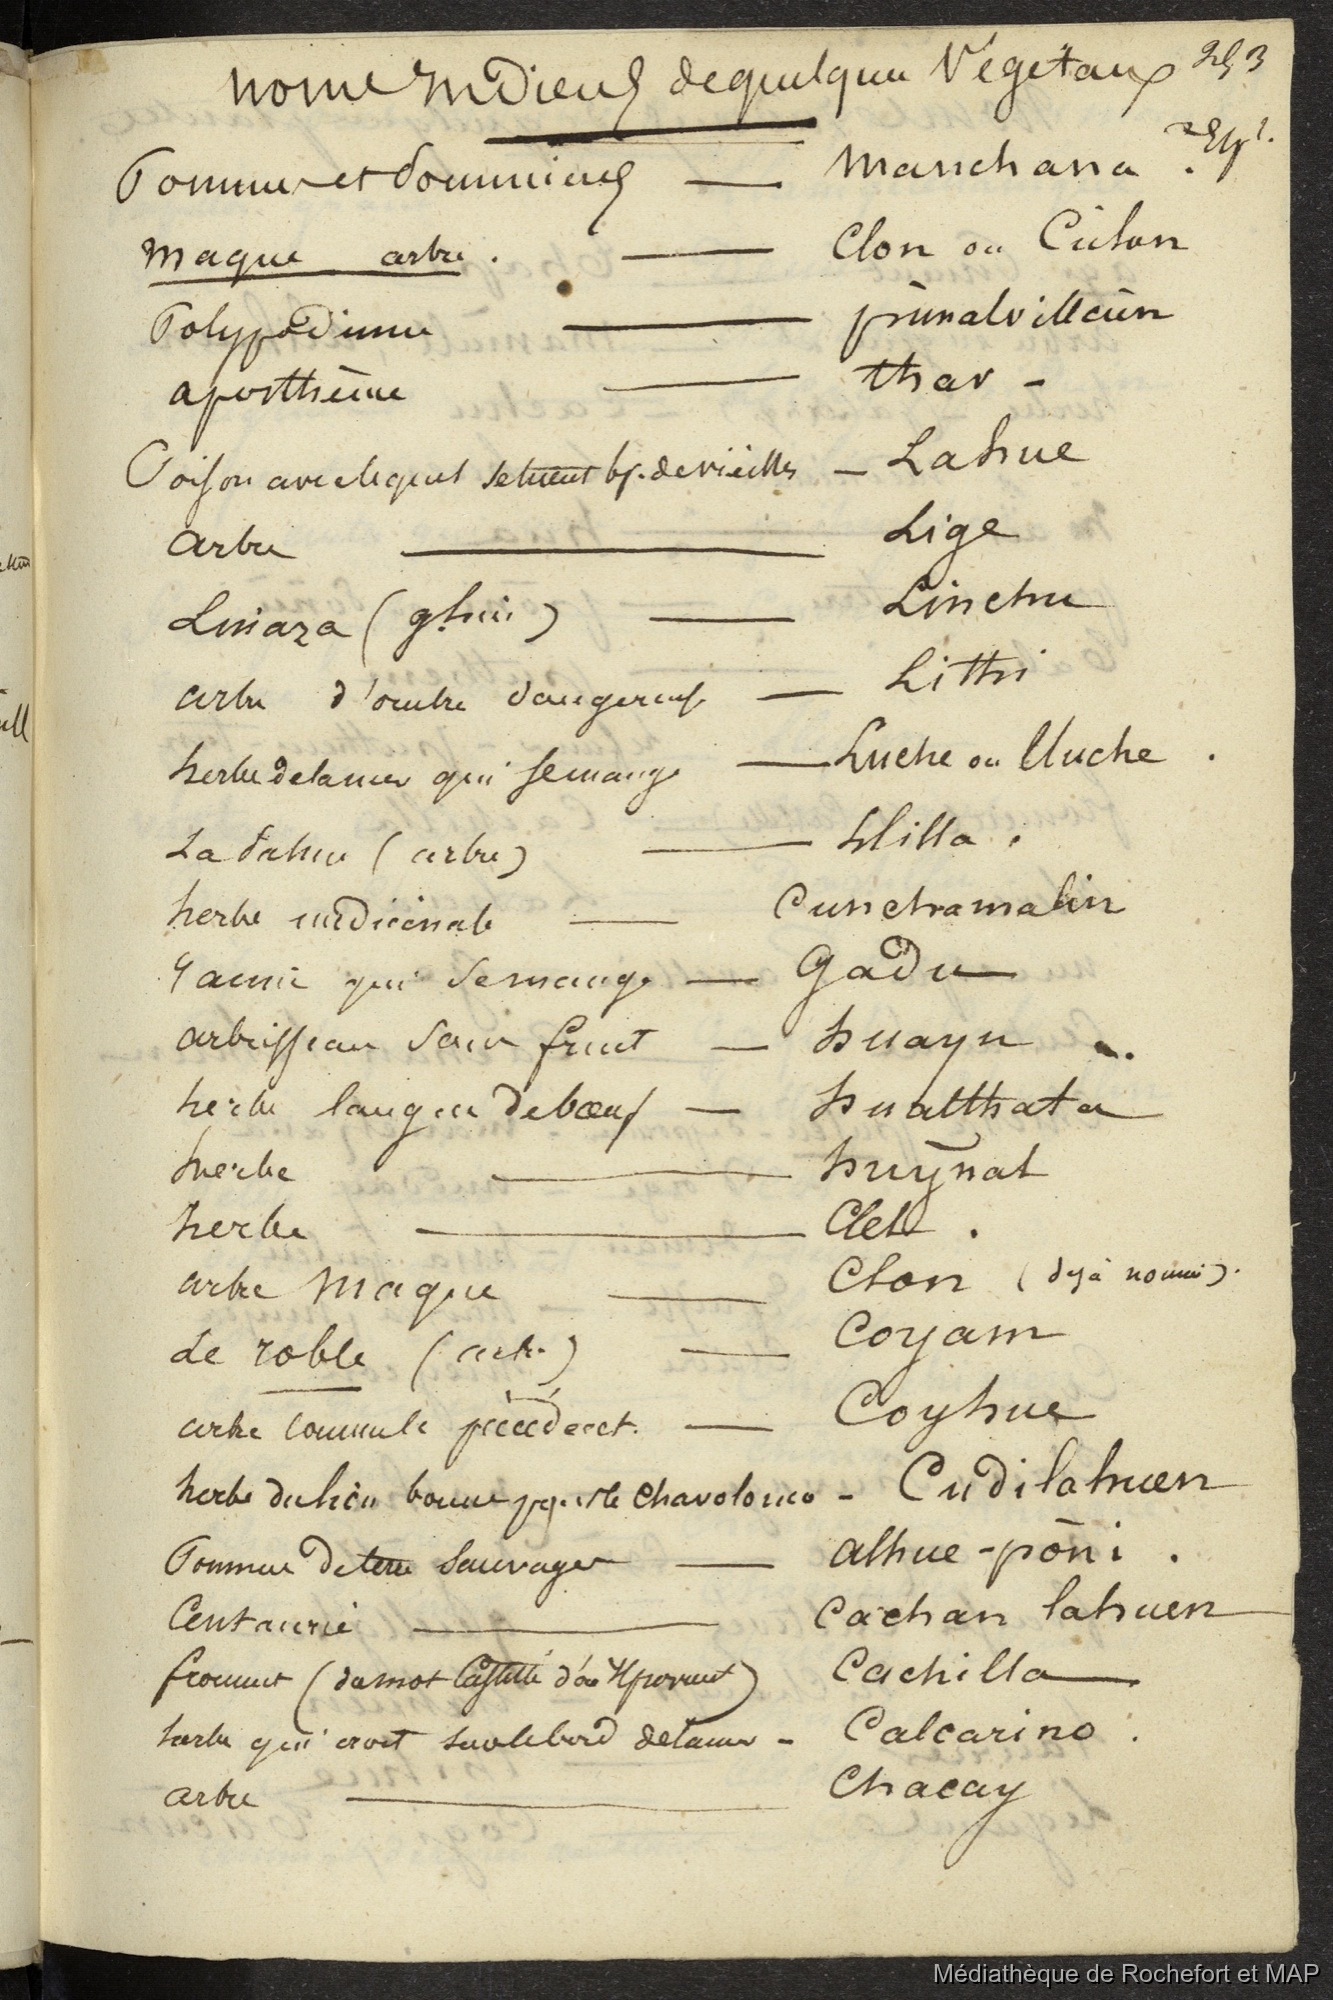 noms Indiens de quelques Végétaux 253
Pommes et Pommiers — Manchana . Esp.l
Maque arbre . — Clon ou Cülon
Polypodium — pünalvilleün
aposthème — thar -
Poison avec lequel se tuent bp. de vieilles — Lahue
arbre — Lige
Linaza (graine) — Linchu
arbre d'ombre dangereuse — Litthi
herbe de la mer qui se mange — Luche ou lluche .
La Pahue (arbre) — Llilla .
herbe médicinale — Cunchamalin
racine qui se mange — Gadu
arbrisseau sans fruit — huayu .
herbe langue de boeuf — hualtthata
herbe — huÿnal
herbe — Clel .
arbre Maque — Clon (déjà nommé).
Le roble (arbre) — Coyam
arbre comme le précédent. — Coyhue
herbe du lieu bonne pour le Chavolonco - Cudilahuen
Pomme de terre sauvage — alhue-pöni .
Centaurie — Cachan lahuen
froment (du mot Castille d'où il provient) Cachilla
herbe qui croit sur le bord de la mer - Calcarino .
arbre — Chacay
Médiathèque de Rochefort et MAP